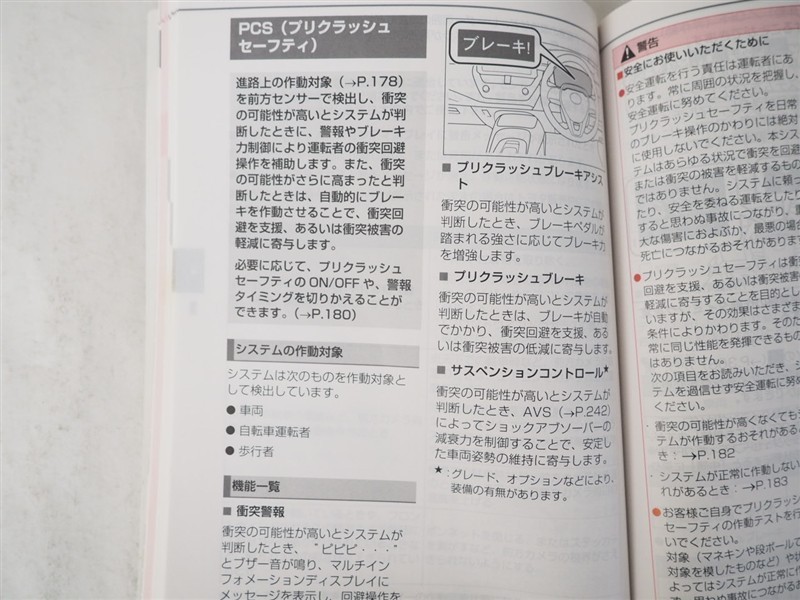 PCS（プリクラッシュ
セーフティ）
進路上の作動対象（→P.178）
を前方センサーで検出し、衝突
の可能性が高いとシステムが判
断したときに、警報やブレーキ
力制御により運転者の衝突回避
操作を補助します。また、衝突
の可能性がさらに高まったと判
断したときは、自動的にブレー
キを作動させることで、衝突回
避を支援、あるいは衝突被害の
軽減に寄与します。
必要に応じて、プリクラッシュ
セーフティの ON/OFF や、警報
タイミングを切りかえることが
できます。（→P.180）
システムの作動対象
システムは次のものを作動対象と
して検出しています。
● 車両
● 自転車運転者
● 歩行者
機能一覧
■ 衝突警報
衝突の可能性が高いとシステムが
判断したとき、“ピピピ・・・”
とブザー音が鳴り、マルチイン
フォメーションディスプレイに
メッセージを表示し、回避操作を
ブレーキ!
■ プリクラッシュブレーキアシス
ト
衝突の可能性が高いとシステムが
判断したとき、ブレーキペダルが
踏まれる強さに応じてブレーキ力
を増強します。
■ プリクラッシュブレーキ
衝突の可能性が高いとシステムが
判断したときは、ブレーキが自動
でかかり、衝突回避を支援、ある
いは衝突被害の低減に寄与します。
■ サスペンションコントロール★
衝突の可能性が高いとシステムが
判断したとき、AVS（→P.242）
によってショックアブソーバーの
減衰力を制御することで、安定し
た車両姿勢の維持に寄与します。
★：グレード、オプションなどにより、
装備の有無があります。
警告
■安全にお使いいただくために
●安全運転を行う責任は運転者にあ
ります。常に周囲の状況を把握し、
安全運転に努めてください。
プリクラッシュセーフティを日常
のブレーキ操作のかわりには絶対
に使用しないでください。本シス
テムはあらゆる状況で衝突を回避
または衝突の被害を軽減するもの
ではありません。システムに頼っ
たり、安全を委ねる運転をしたり
すると思わぬ事故につながり、重
大な傷害におよぶか、最悪の場合
死亡につながるおそれがあります
●プリクラッシュセーフティは衝
回避を支援、あるいは衝突被害
軽減に寄与することを目的とし
いますが、その効果はさまざま
条件によりかわります。そのた
常に同じ性能を発揮できるもの
はありません。
次の項目をお読みいただき、シ
テムを過信せず安全運転に努め
ください。
・衝突の可能性が高くなくても
テムが作動するおそれがある
き：→P.182
・システムが正常に作動しない
れがあるとき：→P.183
●お客様ご自身でプリクラッシ
セーフティの作動テストを行
いでください。
対象（マネキンや段ボールで
対象を模したものなど）や状
よってはシステムが正常に作